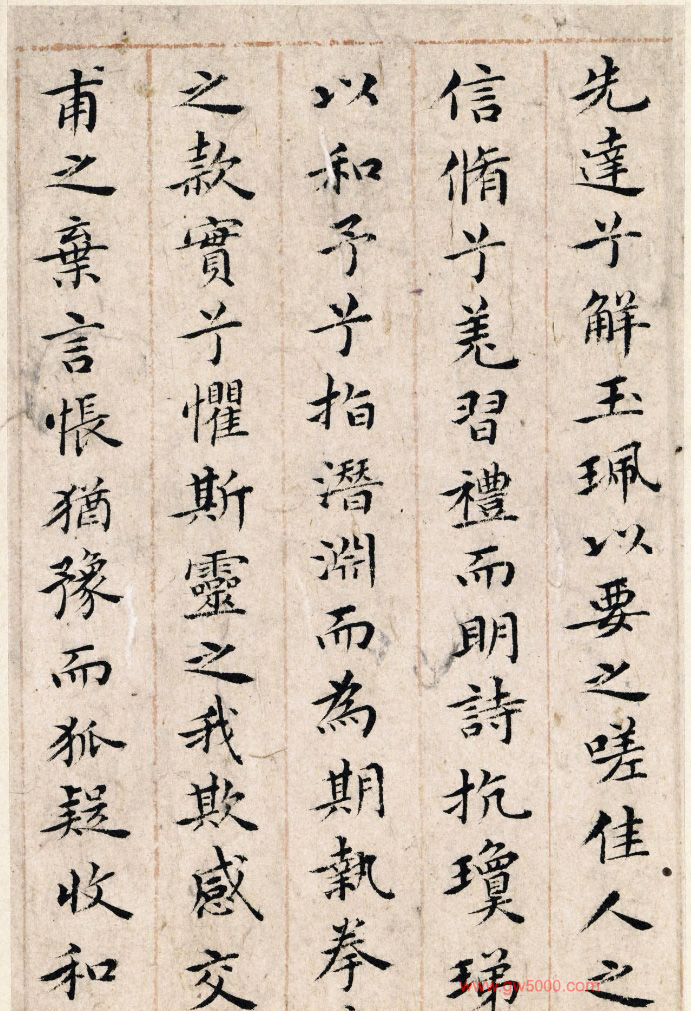 先達兮觧玉珮以要之嗟佳人之
信脩兮羌習禮而眀詩抗瓊珶
以和予兮指潛淵而為期執拳
之款實兮懼斯靈之我欺感交
甫之棄言悵猶豫而狐疑收和
www.gw5000.com